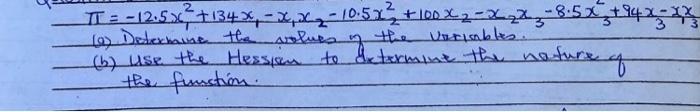 π = -12.5x₁² + 134x₁ - x₁x₂ - 10.5x₂² + 100x₂ - x₂x₃ - 8.5x₃² + 94x₃ - x₁x₃
(a) Determine the values of the variables.
(b) Use the Hessian to determine the nature of
the function.